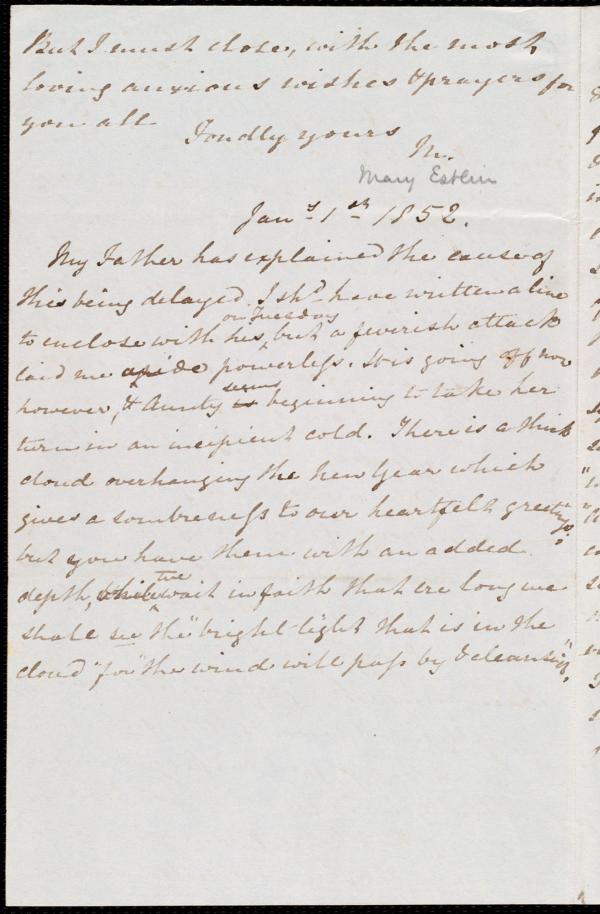 But I must close, with the most
loving anxious wishes & prayers for
you all.
Fondly yours
M.
Mary Estlin
Jany 1st 1852.
My Father has explained the cause of
this being delayed. I shd have written a line
on Tuesday
to enclose with his, but a feverish attack
laid me aside powerless. It is going off now
seems
however, & Aunty is beginning to take her
turn in an incipient cold. There is a thick
cloud overhanging the New Year which
gives a sombreness to our heartfelt greetings:
but you have them with an added
we
depth, while wait in faith that ere long we
shall see the "bright light that is in the
cloud" for "the wind will pass by & cleanse it",